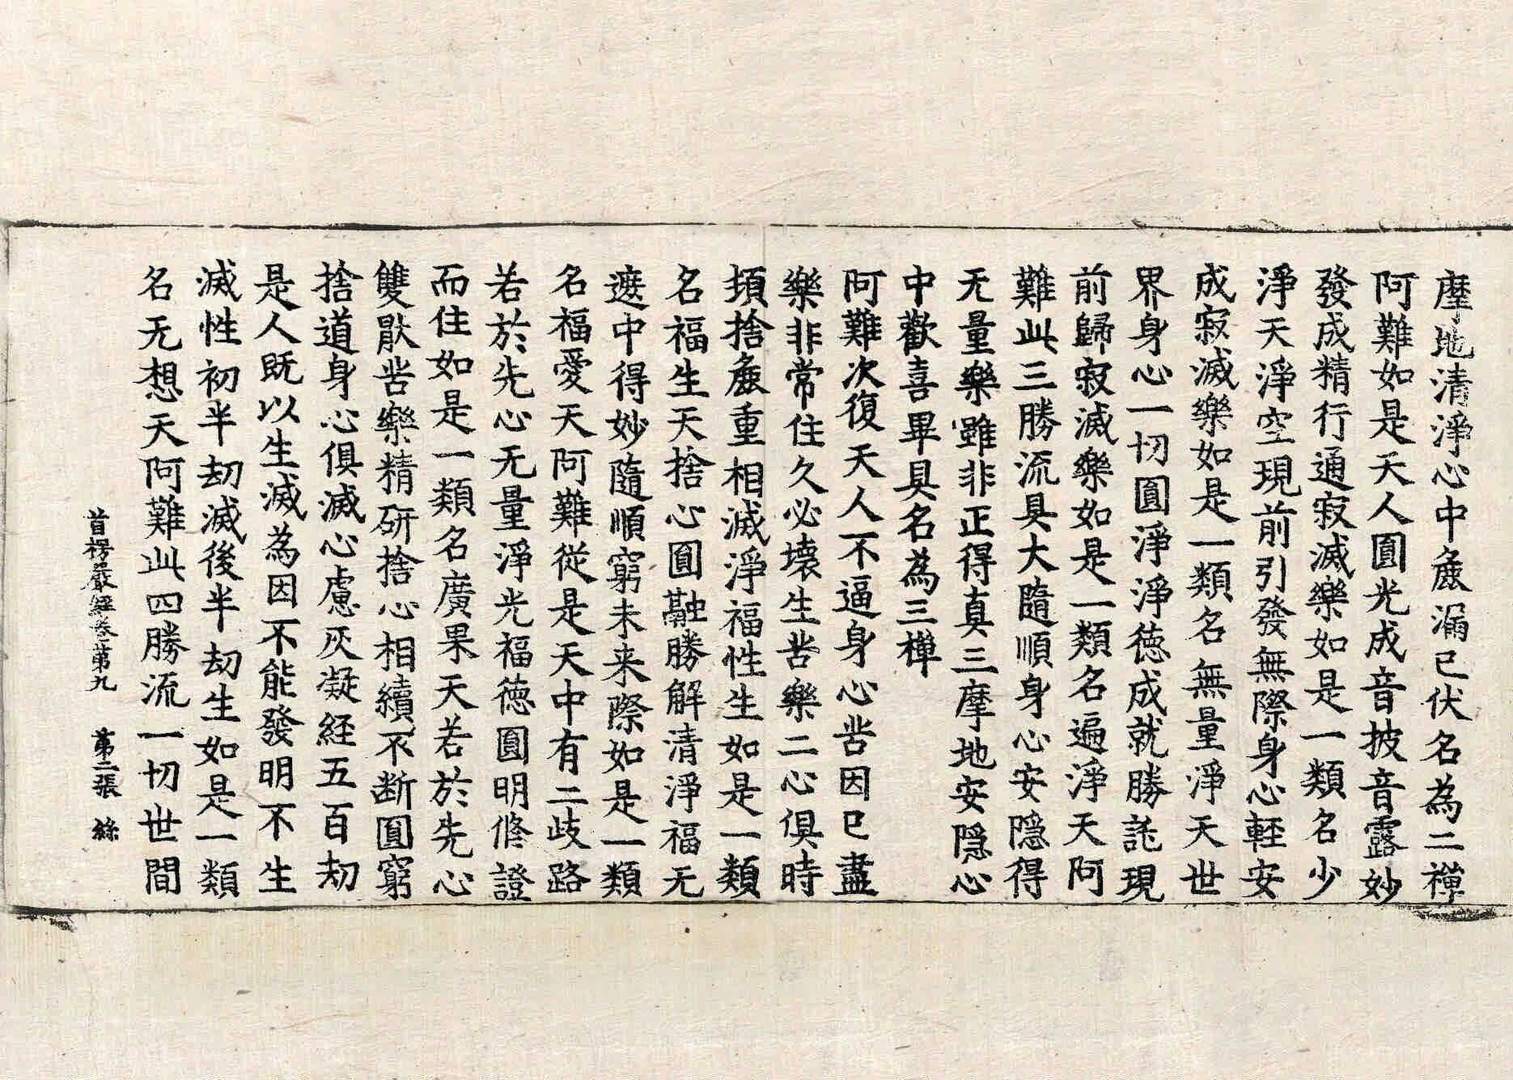 摩地清淨心中麁漏已伏名為二禪
阿難如是天人圓光成音披音露妙
發成精行通寂滅樂如是一類名少
淨天淨空現前引發無際身心輕安
成寂滅樂如是一類名無量淨天世
界身心一切圓淨淨德成就勝託現
前歸寂滅樂如是一類名遍淨天阿
難此三勝流具大隨順身心安隱得
无量樂雖非正得真三摩地安隱心
中歡喜畢具名為三禪
阿難次復天人不逼身心苦因已盡
樂非常住久必壞生苦樂二心俱時
頓捨麁重相滅淨福性生如是一類
名福生天捨心圓融勝解清淨福无
遮中得妙隨順窮未来際如是一類
名福愛天阿難從是天中有二歧路
若於先心无量淨光福德圓明修證
而住如是一類名廣果天若於先心
雙厭苦樂精研捨心相續不断圓窮
捨道身心俱滅心慮灰凝經五百劫
是人既以生滅為因不能發明不生
滅性初半劫滅後半劫生如是一類
名无想天阿難此四勝流一切世間
首楞嚴經卷第九 第二張 絲